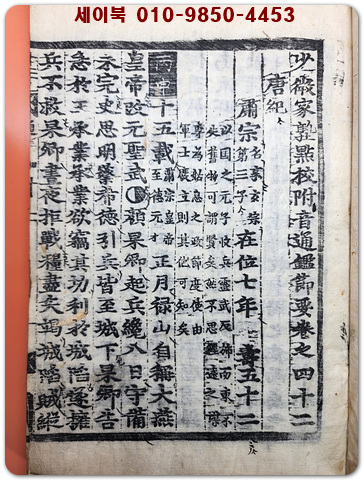 세이북 010-9850-4453
少微家塾點校附音通鑑節要卷之四十二
唐紀
肅宗 名亨玄宗第三子 在位七年 壽五十二
十五載 正月祿山自稱大燕
皇帝改元聖武 顔杲卿起兵纔八日守備
未完史思明蔡希德引兵皆至城下杲卿告
急於王承業承業欲竊其功利於城陷遂擁
兵不救杲卿晝夜拒戰糧盡矢竭城陷賊縱